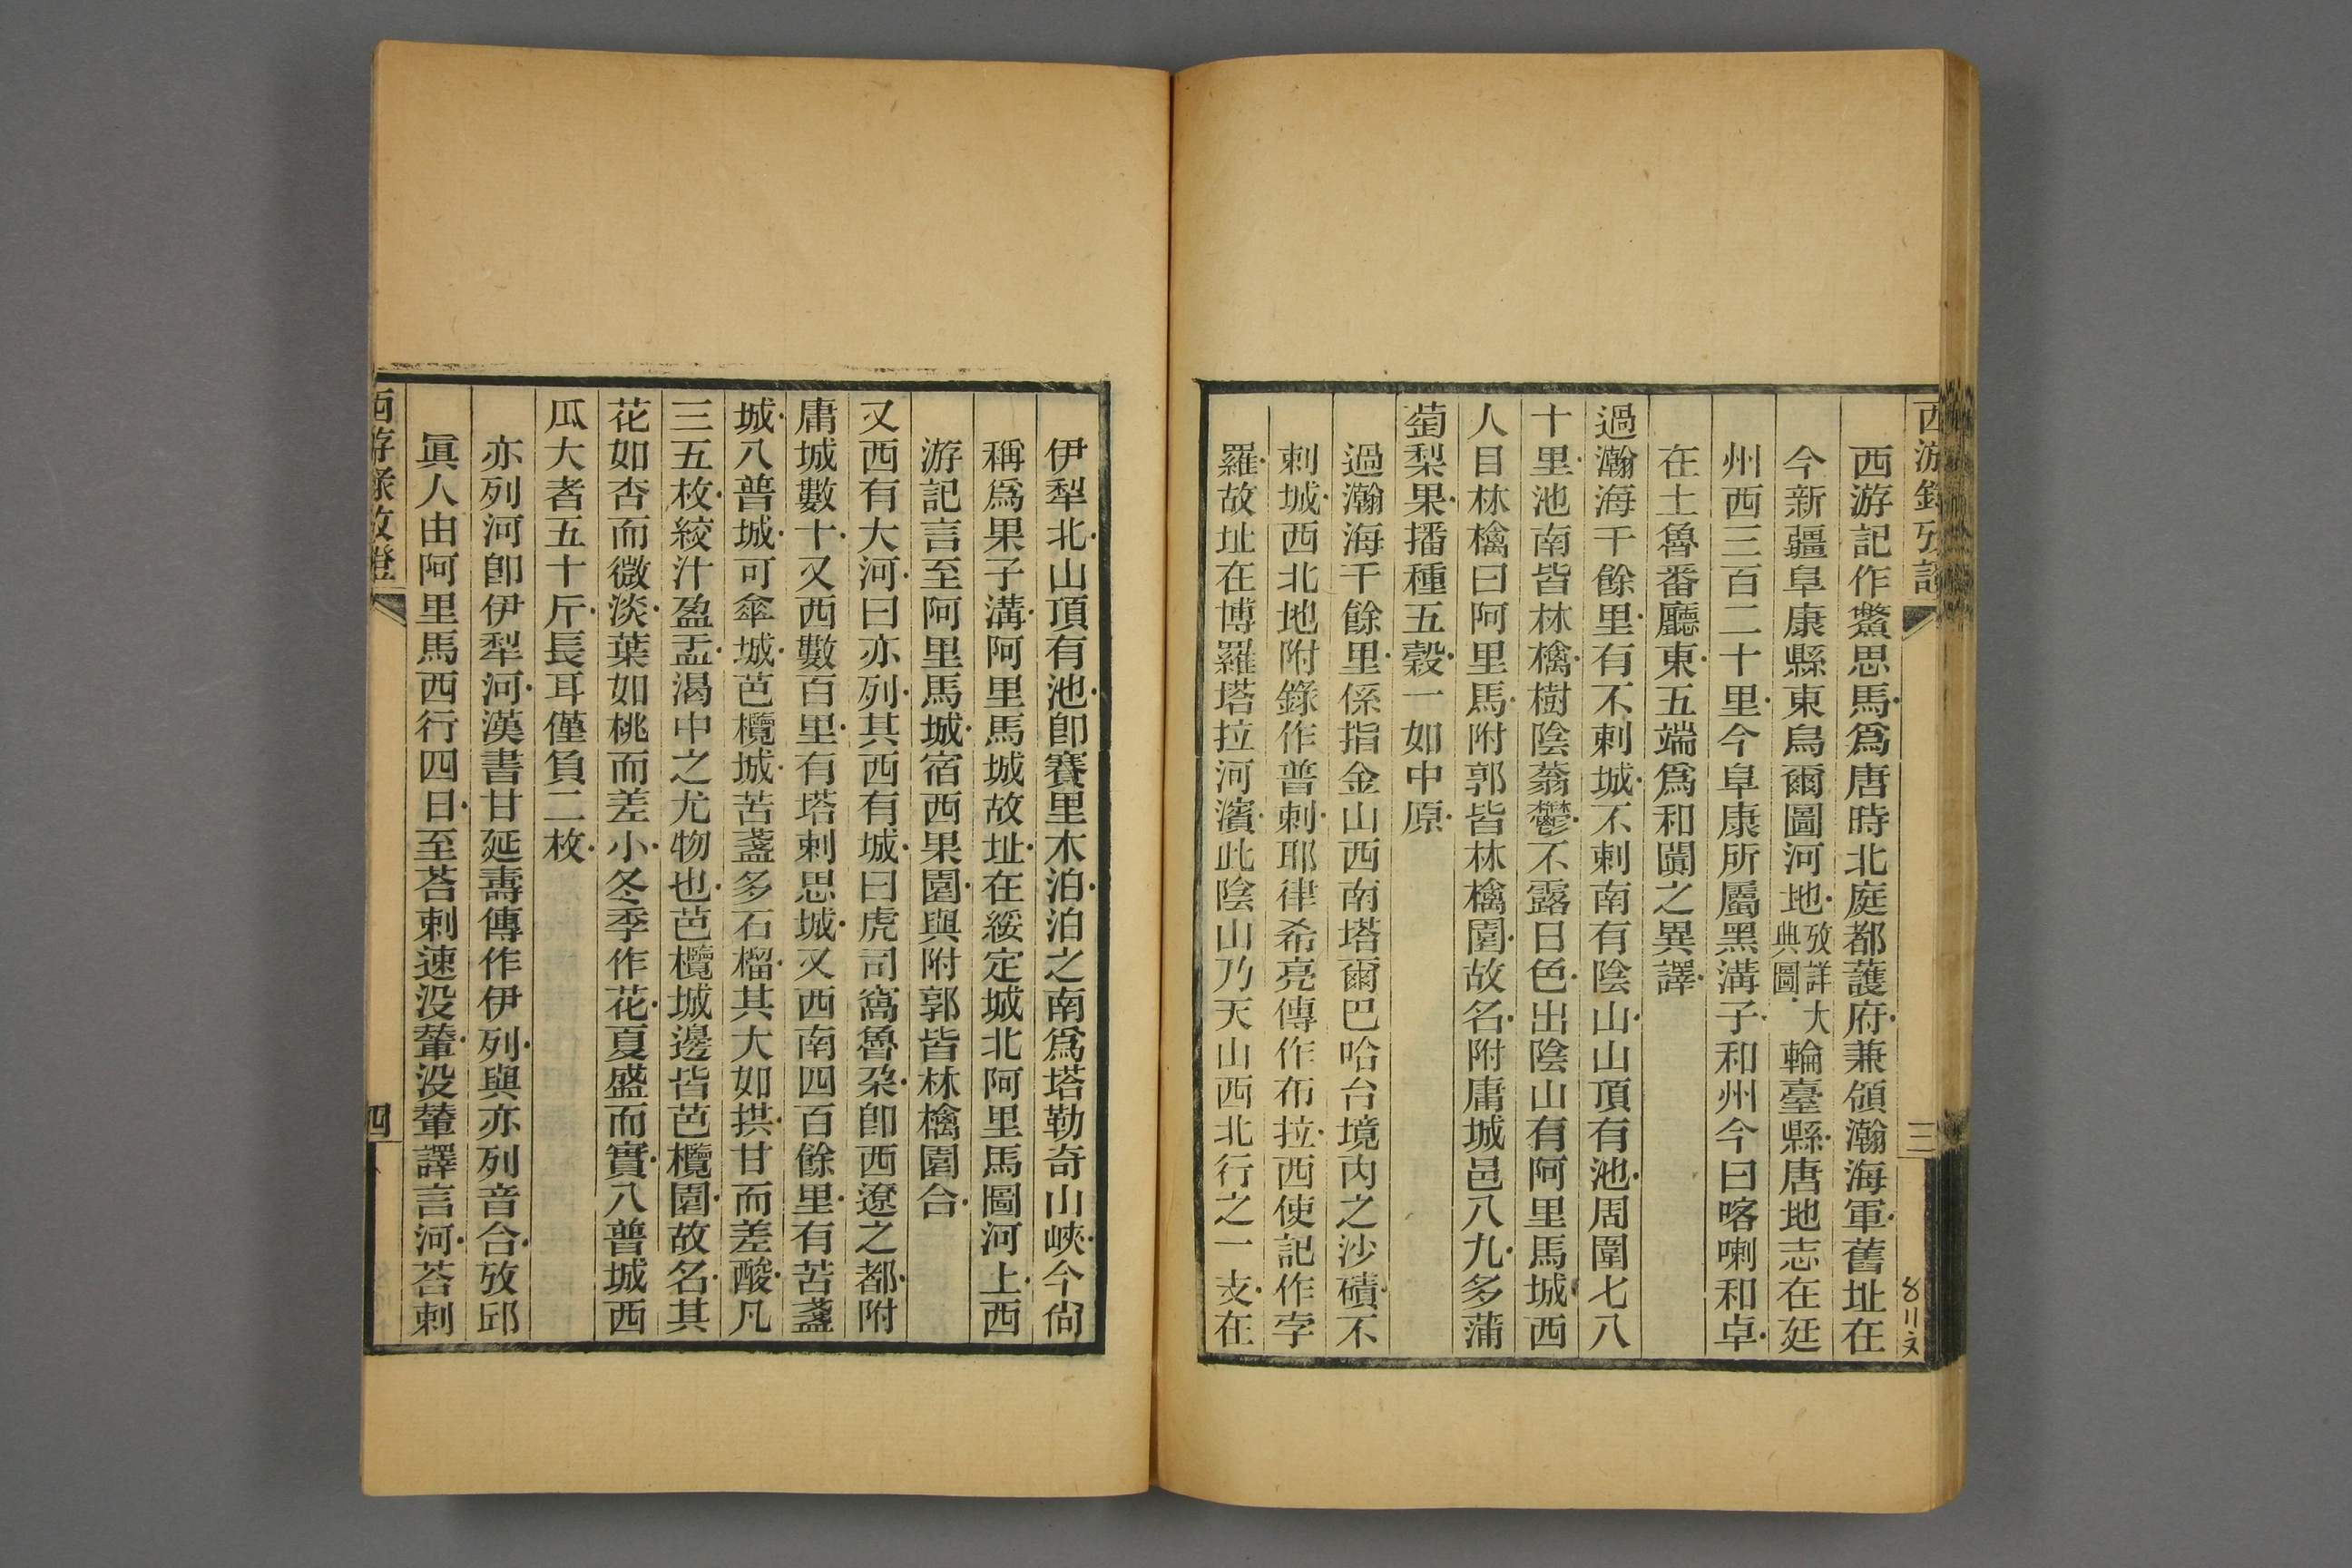 西游錄攷證
三
西游記作鱉思馬爲唐時北庭都護府兼領瀚海軍舊址在
今新疆阜康縣東烏爾圖河地攷詳大典圖輪臺縣唐地志在廷
州西三百二十里今阜康所屬黑溝子和州今曰喀喇和卓
在土魯番廳東五端爲和闐之異譯
過瀚海千餘里有不剌城不剌南有陰山山頂有池周圍七八
十里池南皆林檎樹陰蓊鬱不露日色出陰山有阿里馬城西
人目林檎曰阿里馬附郭皆林檎園故名附庸城邑八九多蒲
萄梨果播種五榖一如中原
過瀚海千餘里係指金山西南塔爾巴哈台境內之沙磧不
剌城西北地附錄作普剌耶律希亮傳作布拉西使記作孛
羅故址在博羅塔拉河濱此陰山乃天山西北行之一支在
伊犁北山頂有池卽賽里木泊泊之南爲塔勒奇山峽今尙
稱爲果子溝阿里馬城故址在綏定城北阿里馬圖河上西
游記言至阿里馬城宿西果園與附郭皆林檎園合
又西有大河曰亦列其西有城曰虎司窩魯朶卽西遼之都附
庸城數十又西數百里有塔剌思城又西南四百餘里有苦盞
城八普城可傘城芭欖城苦盞多石榴其大如拱甘而差酸凡
三五枚絞汁盈盂渴中之尤物也芭欖城邊皆芭欖園故名其
花如杏而微淡葉如桃而差小冬季作花夏盛而實八普城西
瓜大者五十斤長耳僅負二枚
亦列河卽伊犁河漢書甘延壽傳作伊列與亦列音合攷邱
眞人由阿里馬西行四日至荅剌速没輦没輦譯言河荅剌
西游錄攷證
四